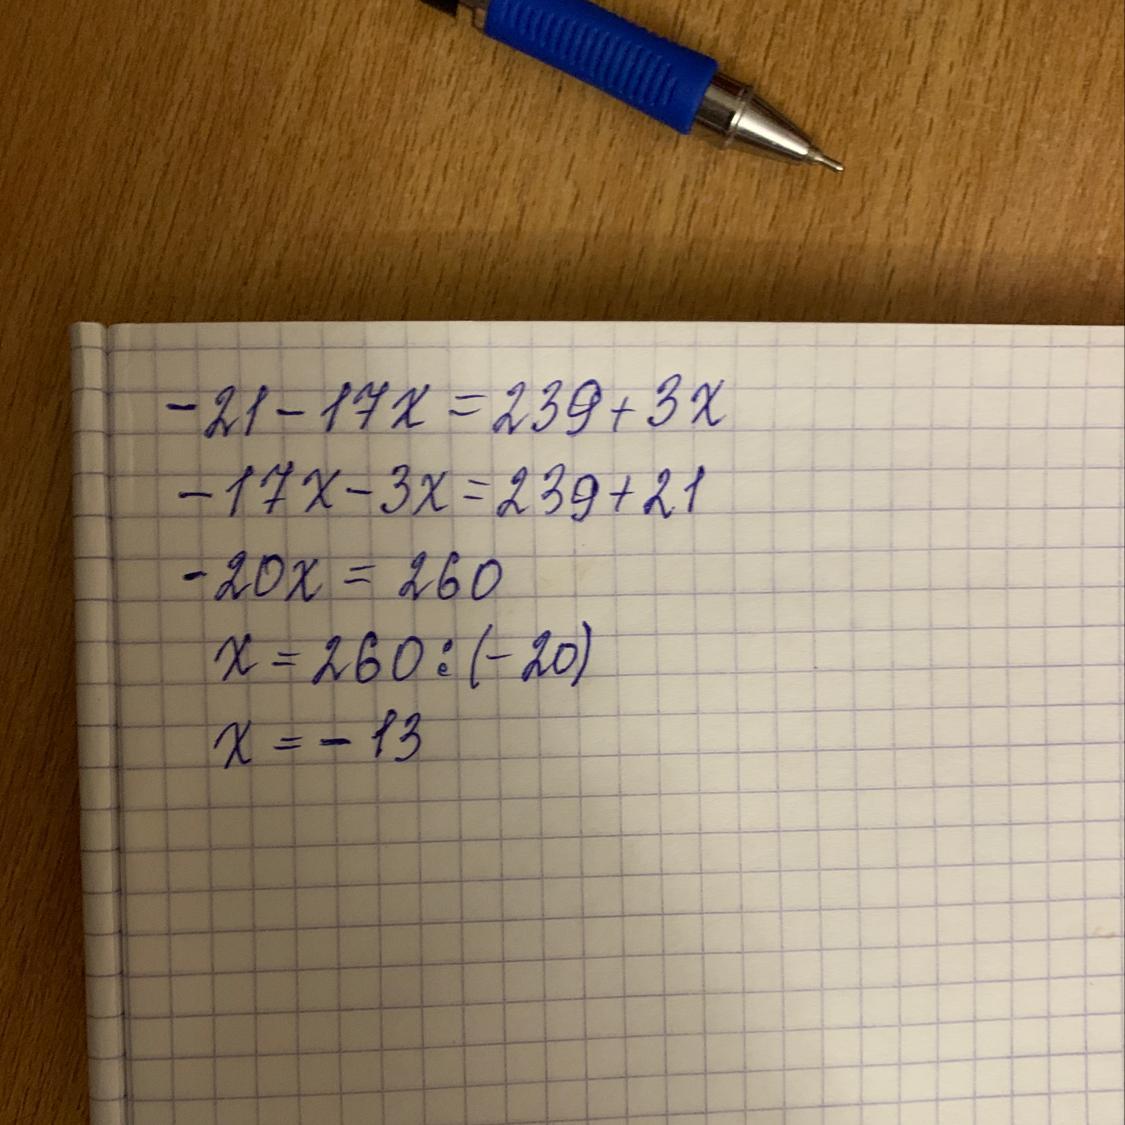 -21-17x=239+3x
-17x-3x=239+21
-20x=260
x=260:(-20)
x=-13